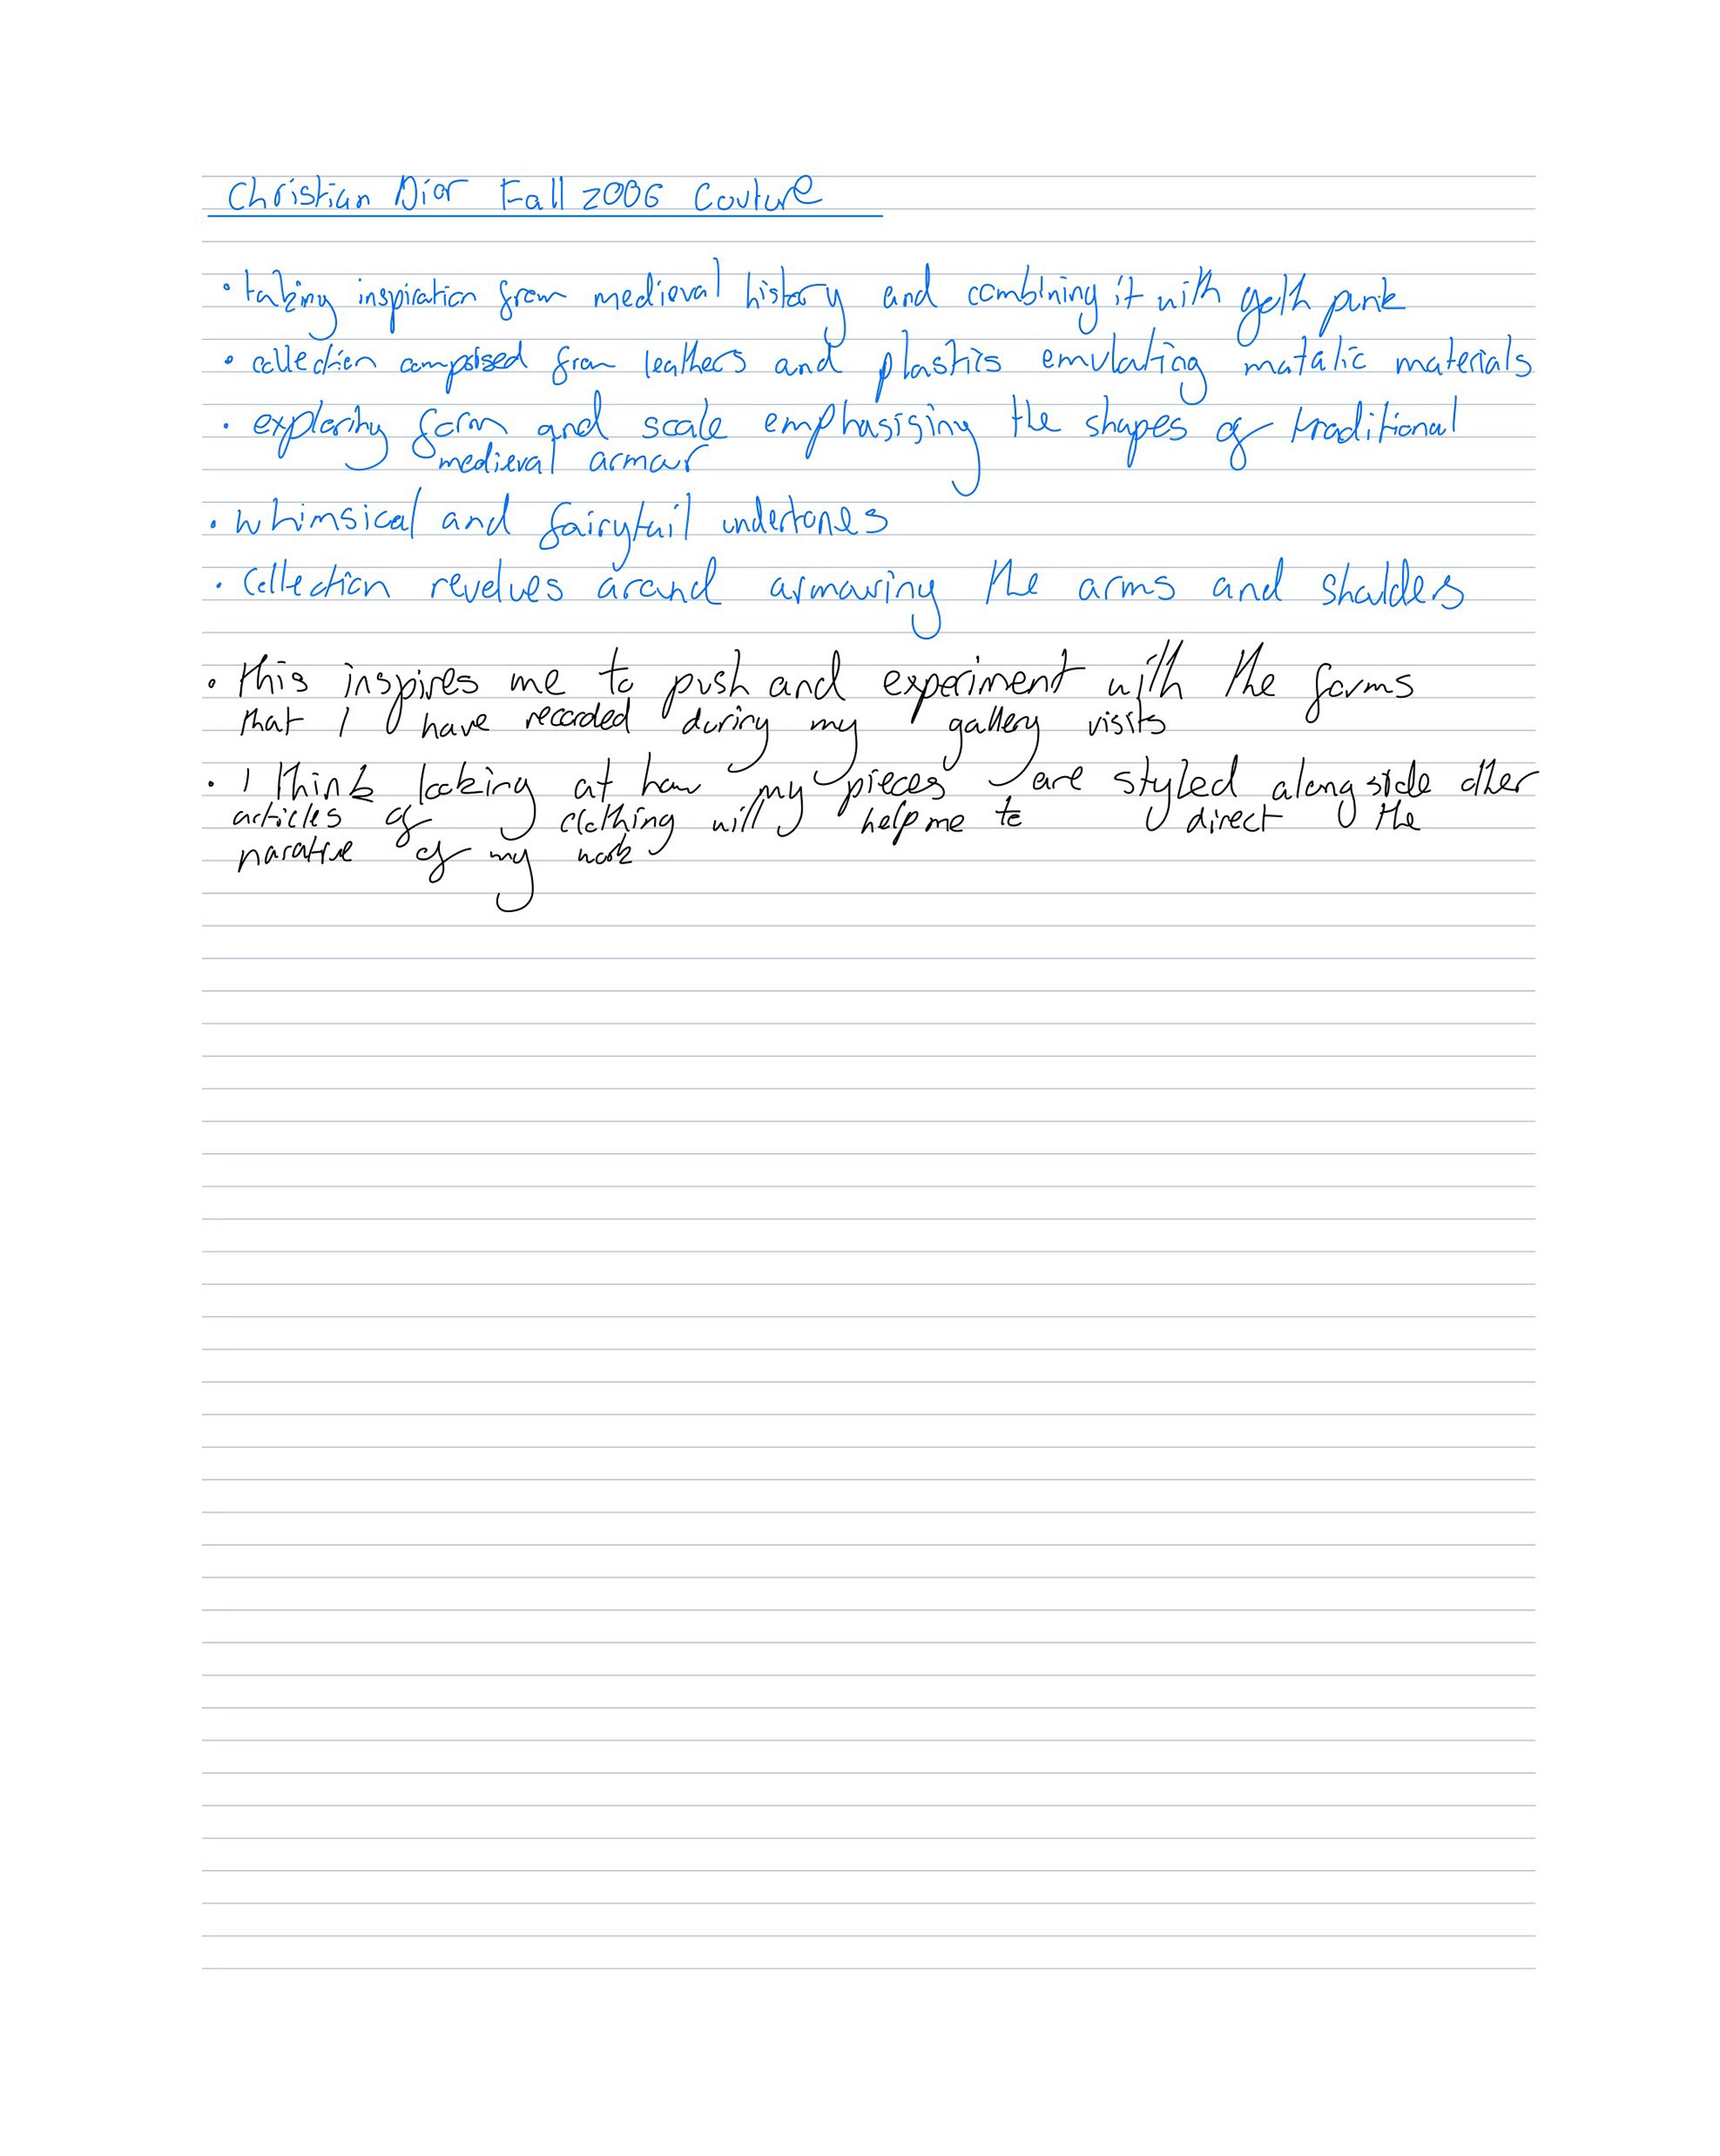 Christian Dior Fall 2006 Couture
• taking inspiration from medieval history and combining it with goth punk
• collection composed from leathers and plastics emulating matalic materials
• exploring form and scale emphasising the shapes of traditional
medieval armour
• whimsical and fairytail undertones
• Collection revolves around armouring the arms and shoulders
• this inspires me to push and experiment with the forms
that I have recorded during my gallery visits
• I think looking at how my pieces are styled alongside other
articles of clothing will help me to direct the
narative of my work